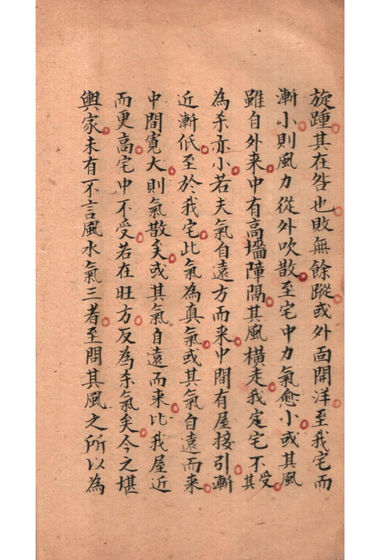 旋踵其在咎也敗無餘蹤或外面開洋至我宅而
漸小則風力從外吹散至宅中力氣愈小或其風
雖自外來中有高墻障隔其風橫走我定宅不受其
為禾亦小若夫氣自遠方而來中間有屋接引漸
近漸低至於我宅此氣為真氣或其氣自遠而來
中間寬大則氣散矣或其氣自遠而來比我屋近
而更高宅中不受若在旺方反為殺氣矣今之堪
輿家未有不言風水氣三者至問其風之所以為